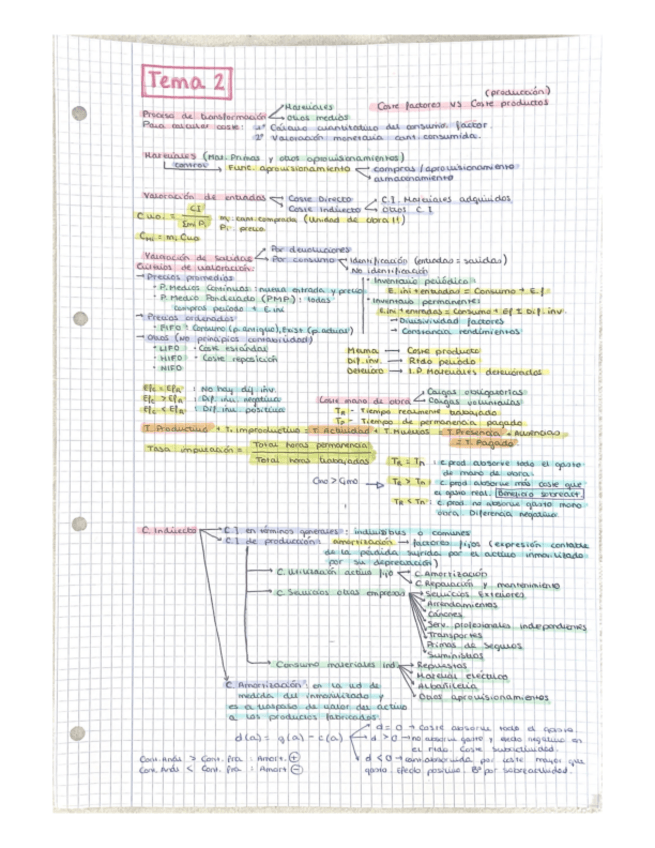 Tema 2
(producción)
Coste factores VS Coste productos
Proceso de transformación Materiales
Otros medios
Para calcular coste: 1º Cálculo cuantitativo del consumo factor.
2º Valoración monetaria cant. consumida.
Materiales (Mat. Primas y otros aprovisionamientos)
control Func. aprovisionamiento compras/aprovisionamiento
almacenamiento
Valoración de entradas Coste Directo
Coste Indirecto C.I. Materiales adquiridos
Otros C.I
Cuo = CI / Σmi Pi
mi: cant. comprada (Unidad de obra!!)
Pi: precio
Cmi = mi Cuo
Valoración de salidas Por devoluciones
Por consumo Identificación (entradas = salidas)
No identificación
Criterios de valoración:
→ Precios promedios
• P. Medios Continuos: nueva entrada y precio
• P. Medio Ponderado (PMP): todas
compras periodo + E.ini
• Inventario periódico:
E. ini + entradas = Consumo + E.f
• Inventario permanente:
E.ini + entradas = Consumo + Ef ± Dif. inv.
→ Divisividad factores
→ Constancia rendimientos
→ Precios ordenados
• FIFO: Consumo (p. antiguo), Exist (p. actual)
→ Otros (No principios contabilidad)
• LIFO • Coste estándar
• HIFO • Coste reposición
• NIFO
Merma → Coste producto
Dif. inv. → Rtdo periodo
Deterioro → I.P. Materiales deteriorados
Efc = Efr : No hay dif inv.
Efc > Efr : Dif. inv negativa
Efc < Efr : Dif. inv positiva
Coste mano de obra Cargas obligatorias
Cargas voluntarias
TR - Tiempo realmente trabajado
TP - Tiempo de permanencia pagado
T. Productivo + T. improductivo = T. Actividad + T. Muertos = T. Presencia + Ausencias
= T. Pagado
Tasa imputación = Total horas permanencia / Total horas trabajadas
: c prod. absorbe todo el gasto
de mano de obra.
: c prod absorbe más coste que
el gasto real. Beneficio sobreact.
: c prod. no absorbe gasto mano
obra. Diferencia negativa.
C. Indirecto C.I en términos generales: individuos o comunes
C.I de producción: amortización → factores fijos (expresión contable
de la pérdida sufrida por el activo inmovilizado
por su depreciación)
C. Utilización activo fijo C. Amortización
C. Reparación y mantenimiento
C. Servicios otras empresas Servicios Exteriores
Arrendamientos
Cánones
Serv. profesionales independientes
Transportes
Primas de seguros
Suministros
Consumo materiales ind. Repuestos
Material eléctrico
Albañilería
Otros aprovisionamientos
C. Amortización: en la ud de
medida del inmovilizado y
es a traspaso de valor del activo
a los productos fabricados.
d(a) = g(a) - c(a)
d = 0 → coste absorbe todo el gasto.
d > 0 → no absorbe gasto y efecto negativo en
el rtdo. Coste subactividad.
d < 0 → absorbida por coste mayor que
gasto. Efecto positivo. Bº por sobreactividad.
Amort. +
Amort −